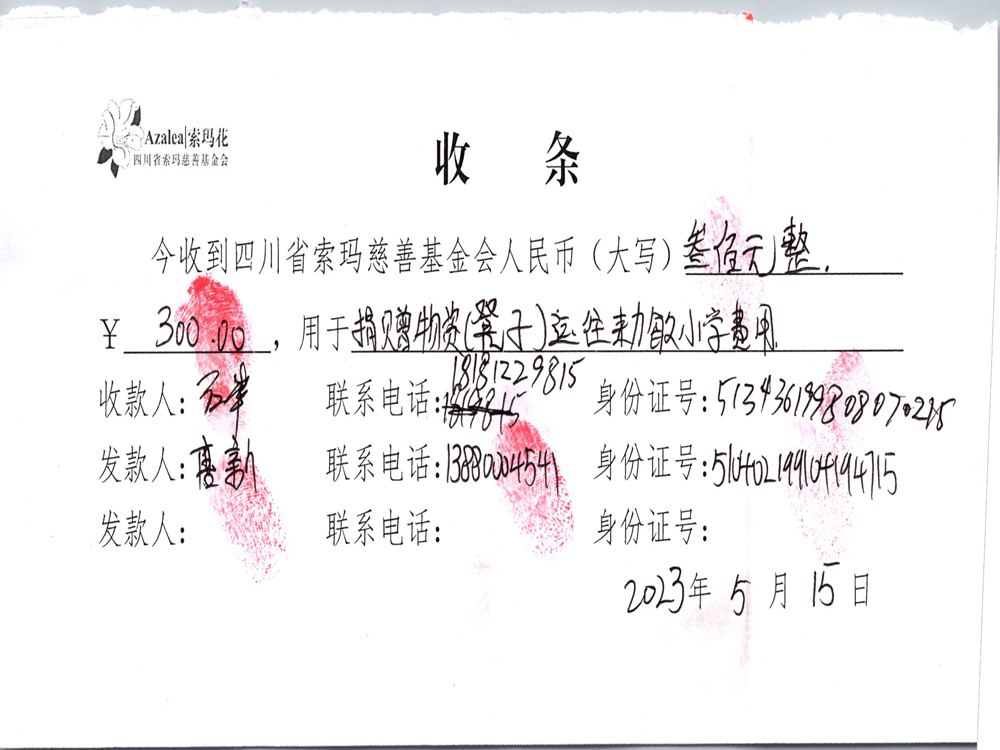 Azalea|索玛花
四川省索玛慈善基金会
收 条
今收到四川省索玛慈善基金会人民币（大写）叁佰元整.
￥ 300.00 ，用于捐赠物资(凳子)运往来敏小学费用
18181229815
收款人: 联系电话: 身份证号:513436199808070215
发款人: 联系电话:13880004541 身份证号:510402199104194715
发款人: 联系电话: 身份证号:
2023年 5 月 15 日